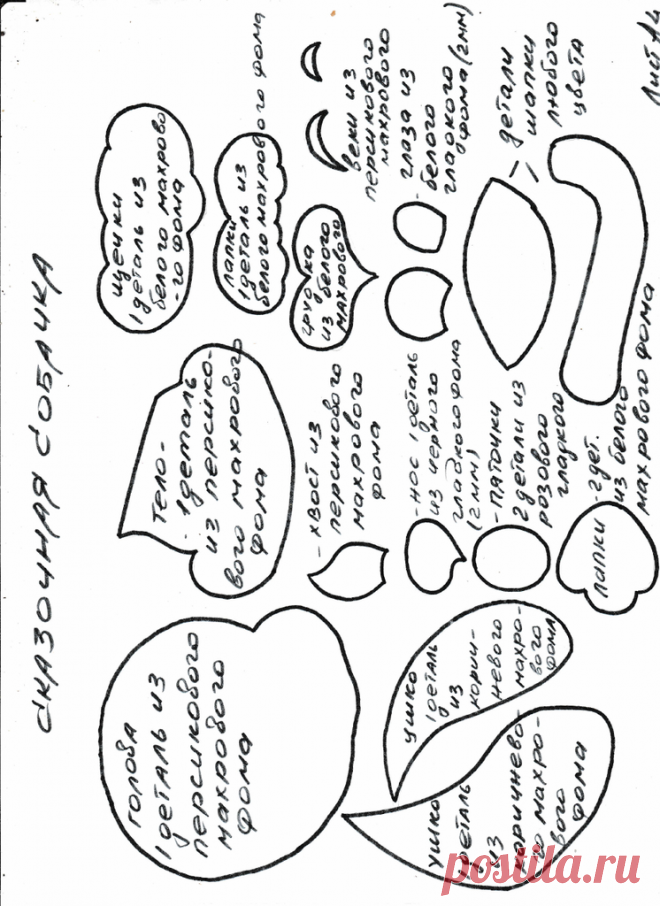 СКАЗОЧНАЯ СОБАЧКА
Лист А4
голова
1деталь из
персикового
махрового
фома
тело-
- 1деталь
из персико-
вого махрового
фома
щечки
1деталь из
белого махрово
-го фома
лапки
1деталь из
белого махрового фома
грудка
из белого
махрового
веки из
персикового
махрового
глаза из
белого
гладкого
фома(2мм)
- хвост из
персикового
махрового
фома
- нос 1деталь
из черного
гладкого фома
(2мм)
- паточки
2детали из
розового
гладкого
детали
шапки
любого
цвета
ушко
1деталь
из
корич-
невого
махро-
вого
фома
ушко
1деталь
из
коричнево-
го махро-
вого
фома
лапки - 2дет.
из белого
махрового фома
postila.ru